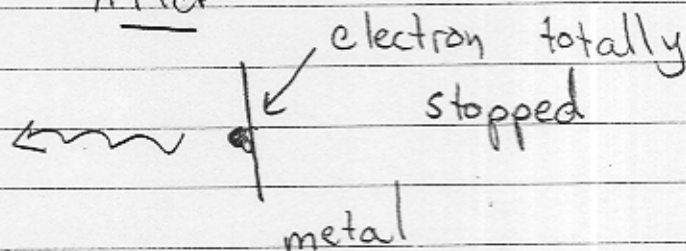 electron totally
stopped
metal